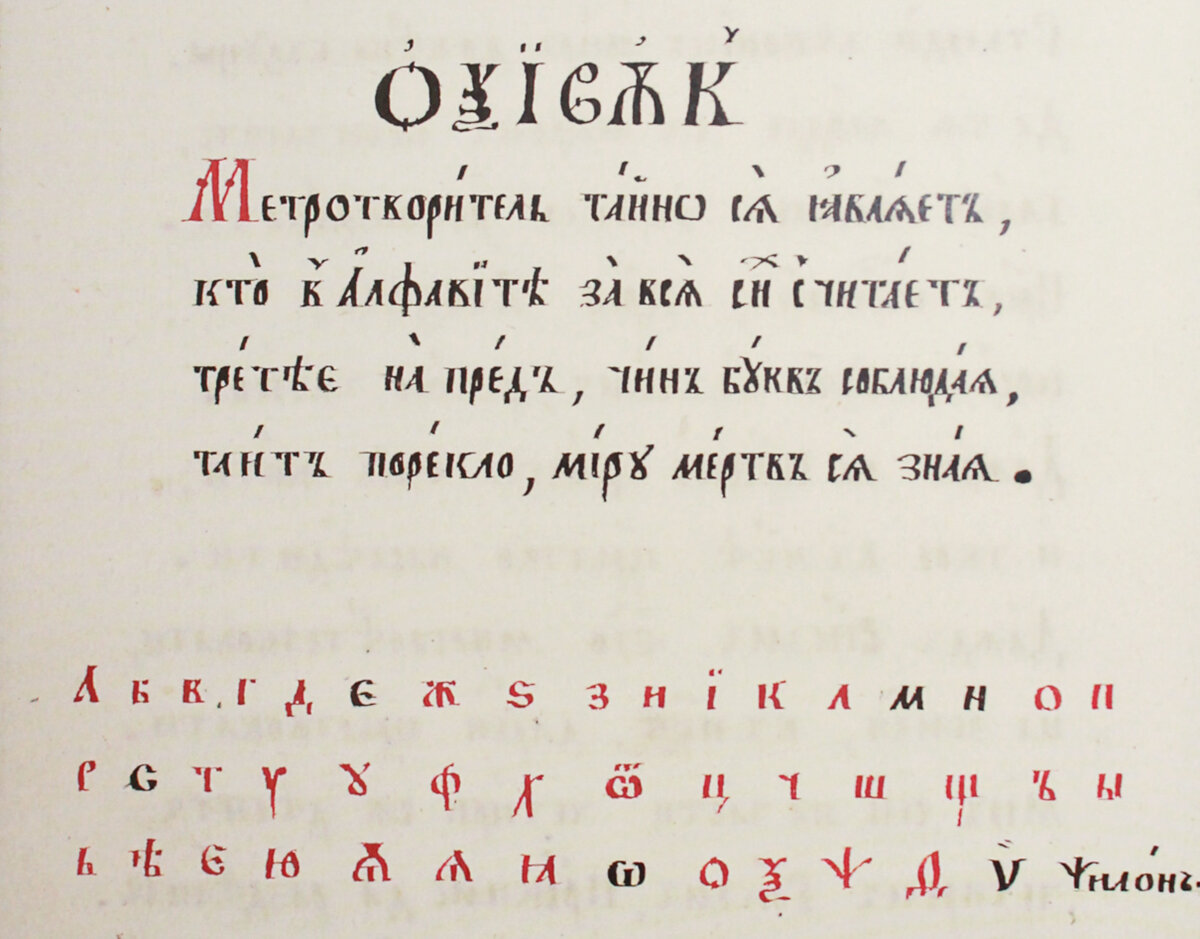 Ѻ҆ѮЇЄѪ҆В̾
Метротвори́тель та́йно сѧ̀ ꙗ҆влѧ́етъ,
кто̀ в̾ А҆лфаві́тѣ за̀ всѧ̀ сїи̑ счита́етъ,
тре́тѣе на̀ пре́дъ, чи́нъ бꙋ́квъ соблюда́ѧ,
таи́тъ поре́кло, мі́рꙋ ме́ртвъ сѧ̀ зна́ѧ.
А Б В Г Д Є Ж Ѕ З И Ї К Л М Н О П
Р С Т Ү Ꙋ Ф Х Ѿ Ц Ч Ш Щ Ъ Ы
Ь Ѣ Є Ю Ѫ Ѧ Ꙗ Ѡ О Ѯ Ѱ Д Ѷ Ѱило́нъ.